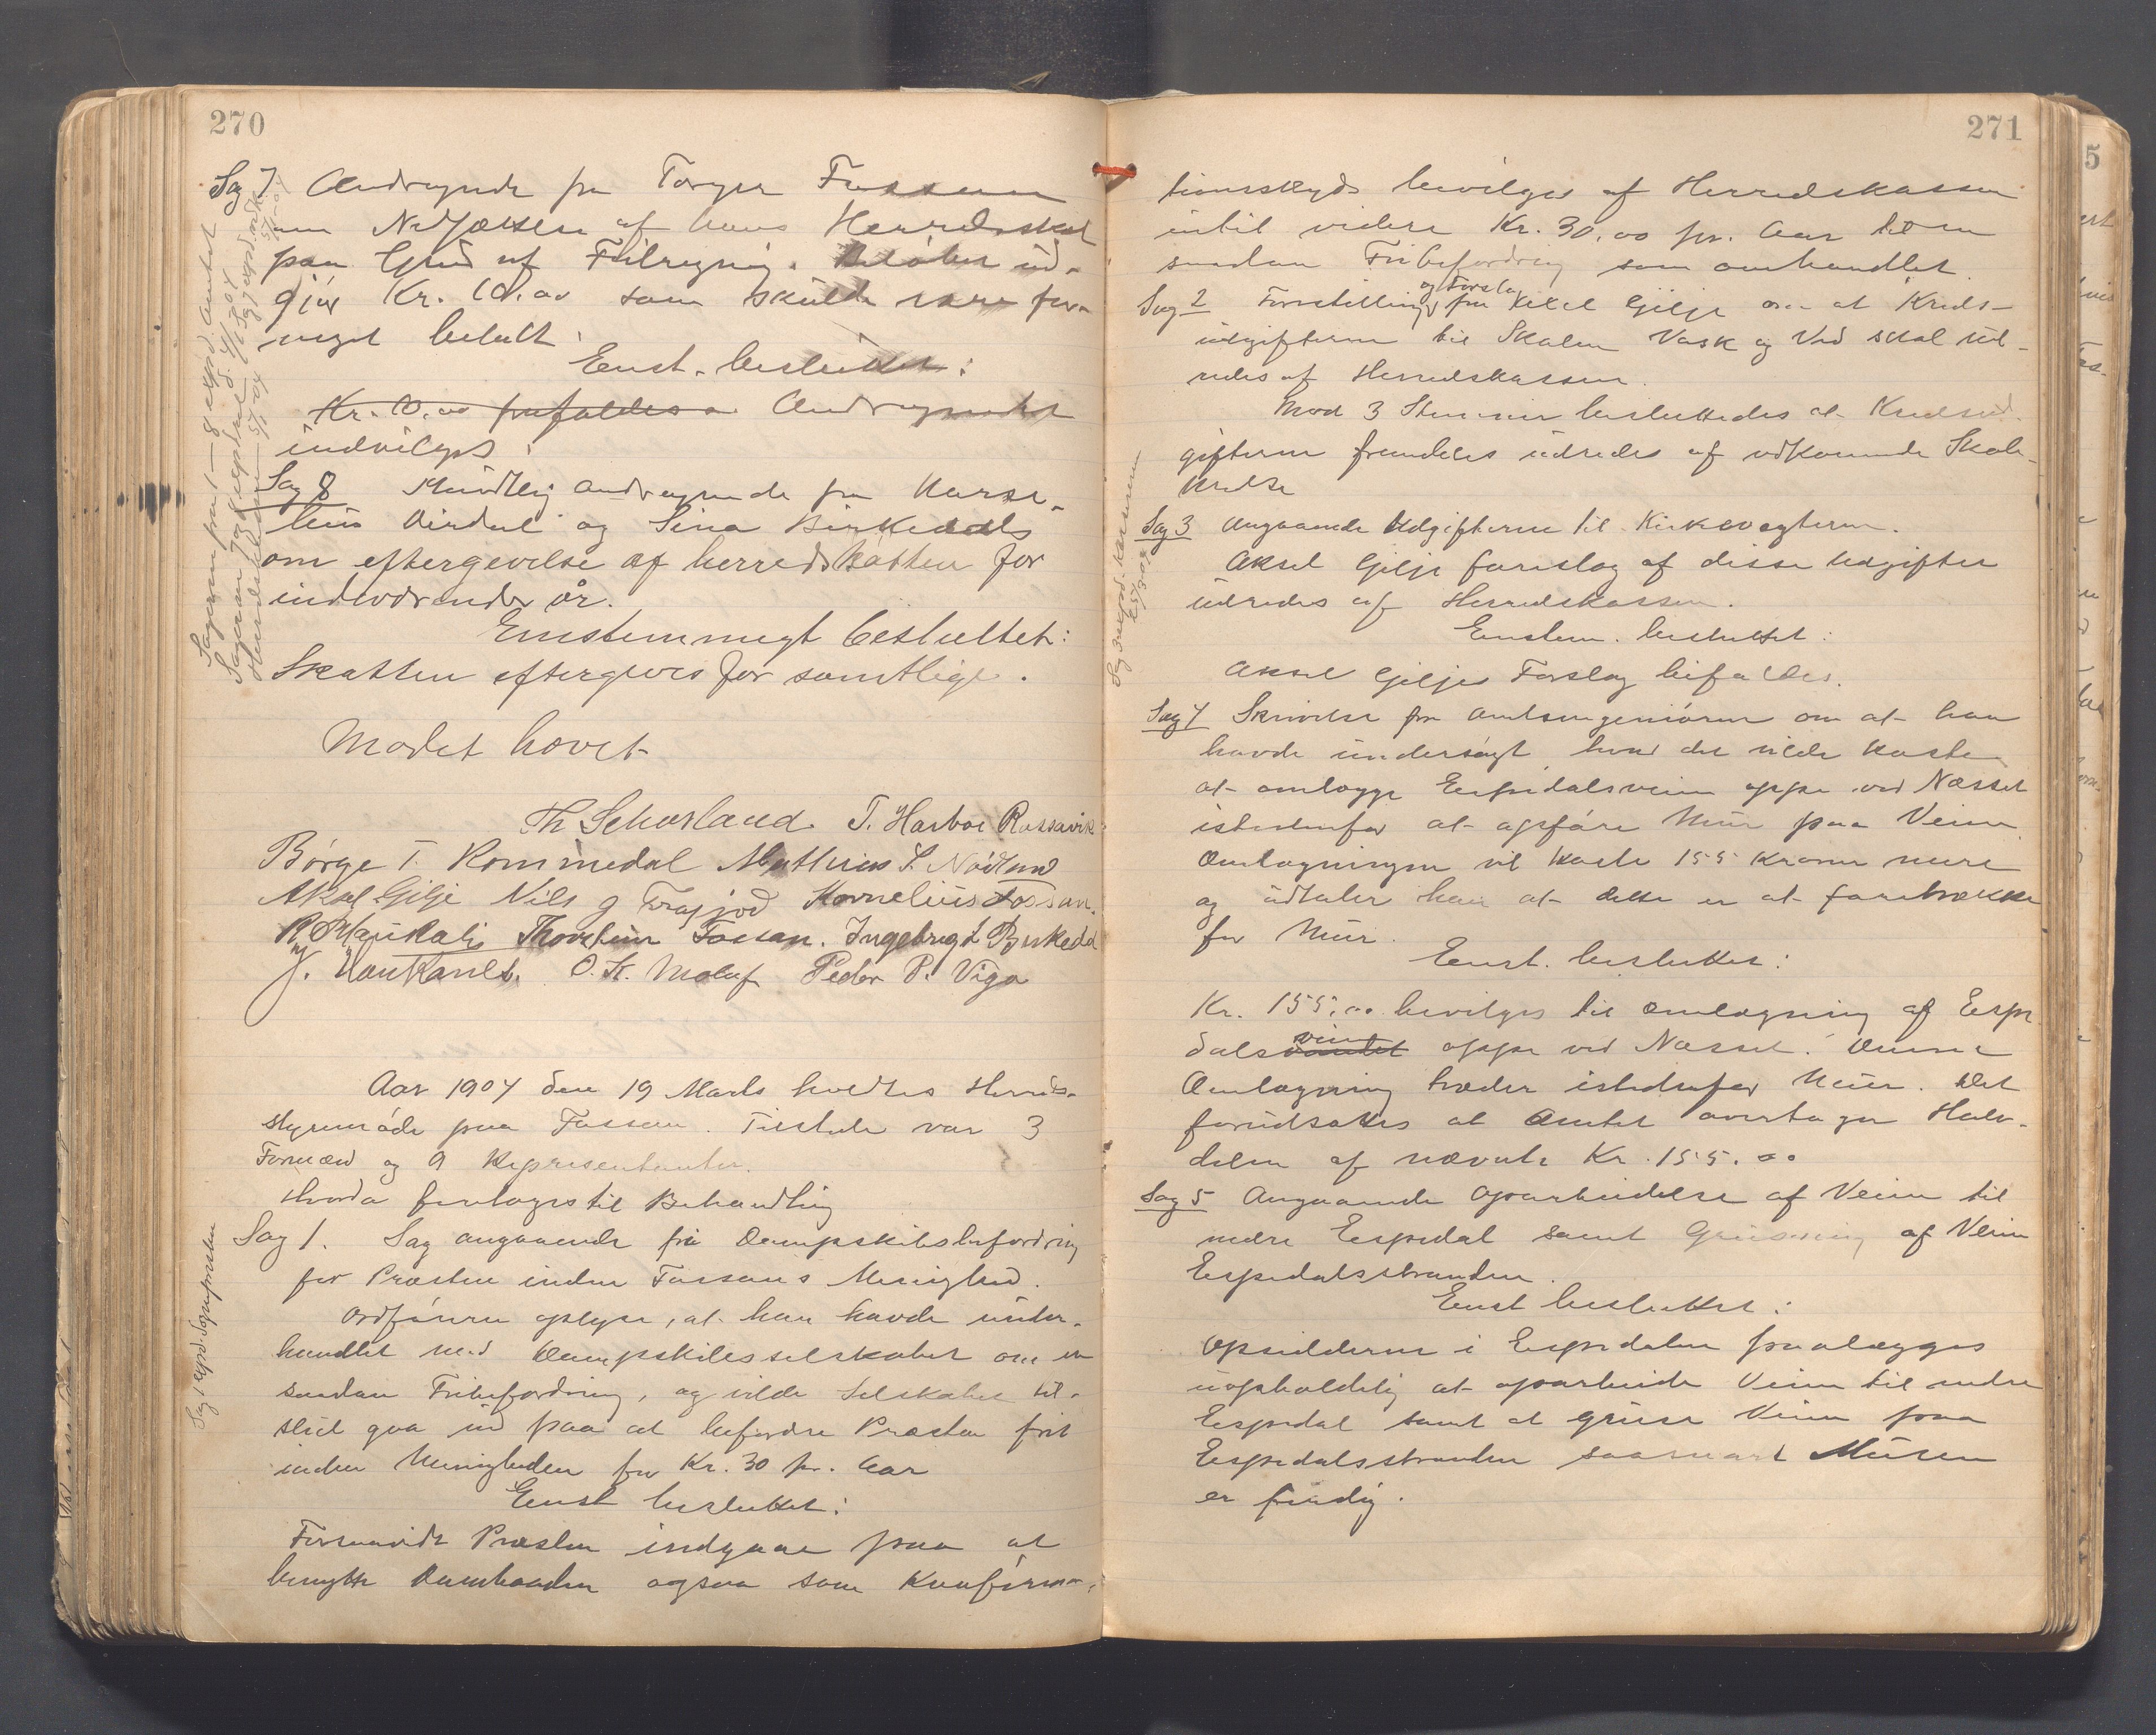 270
Sag 7 Andragende fra Torger Fossan
om Nedsættelse af hans Herredsskat
paa Grund af Feilregning. Beløbet ud-
gjør Kr. 10.00 som skulde være for-
meget betalt.
Enst. besluttet:
Kr. 10.00 frafaldes Andragendet
indvilges.
Sag 8 Mundtlig Andragende fra
og Sina Birkedals
om eftergevelse af herredsskatten for
indeværende år.
Einstemmigt besluttet:
Skatten eftergives for samtlige.
Mødet hævet
Th Schørland. T. Harboe Rossavik
Børge T. Rommedal Mathias S. Nødland
Aksel Gilje Nils J Frafjod Kornelius Fossan.
Thorstein Fossan. Ingebrigt Birkedal
J. Haukalid. O. K. Molaug Peder P. Viga
Aar 1904 den 19 Marts holdtes Herreds-
styremøde paa Fossan. Tilstede var 3
Formænd og 9 Repræsentanter.
Hvorda foretoges til Behandling
Sag 1. Sag angaaende fri Dampskibsbefordring
for Præsten inden Fossans Menighed.
Ordføreren oplyser, at han havde under-
handlet med Dampskibsselskabet om en
saadan Fribefordring, og vilde Selskabet til-
slut gaa ind paa at befordre Præsten frit
inden Menigheden for Kr. 30 pr. Aar
Enst besluttet:
Forsaavidt Præsten indgaar paa at
benytte Dambaaden ogsaa som Konfirma-
Sag 1 expd. Sognepresten
271
tionsskyds bevilges af Herredskassen
indtil videre Kr. 30.00 pr. Aar til en
saadan Fribefordring som omhandlet.
Sag 2 Forestilling og Forslag fra Aksel Gilje om at Kreds-
udgifterne til Skolen Vask og Ved skal ud-
redes af Herredskassen.
Mod 3 Stemmer besluttedes at Kredsud-
gifterne fremdeles udredes af vedkommende Skole-
kredse
Sag 3 Angaaende Udgifterne til Kirkevagterne.
Aksel Gilje foreslog at disse Udgifter
udredes af Herredskassen.
Enstem. besluttet:
Aksel Giljes Forslag bifaldes.
Sag 4 Skrivelse fra Amtsingeniøren om at han
havde undersøgt hvad det vilde koste
at omlægge Espedalsveien oppe ved Næsset
istedenfor at opføre Mur paa Veien.
Omlægningen vil koste 155 Kroner mere
og udtaler han at dette er at foretrække
for Mur.
Enst. besluttet:
Kr. 155.00 bevilges til Omlægning af Espe
dalsvandet veien oppe ved Næsset. Denne
Omlægning træder istedenfor Mur. Det
forudsættes at Amtet overtager Halv-
delen af nævnte Kr. 155.00
Sag 5 Angaaende Oparbeidelse af Veien til
nedre Espedal samt Grusning af Veien
Espedalsstranden.
Enst besluttet:
Opsidderne i Espedalen paalægges
uopholdelig at oparbeide Veien til nedre
Espedal samt at gruse Veien paa
Espedalsstranden saasnart Muren
er færdig.